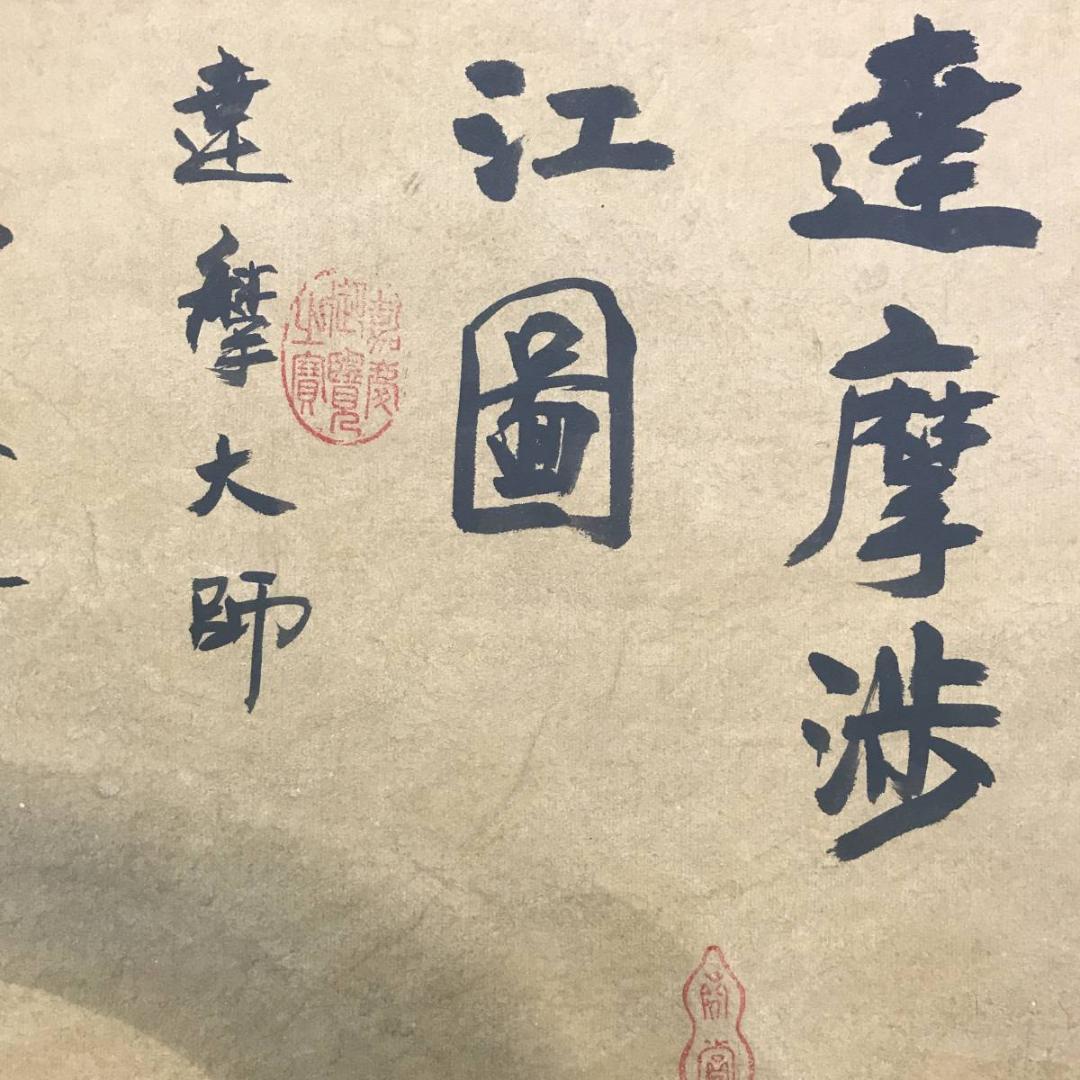 達摩涉
江圖
達摩大師
嘉慶
御覽
之寶